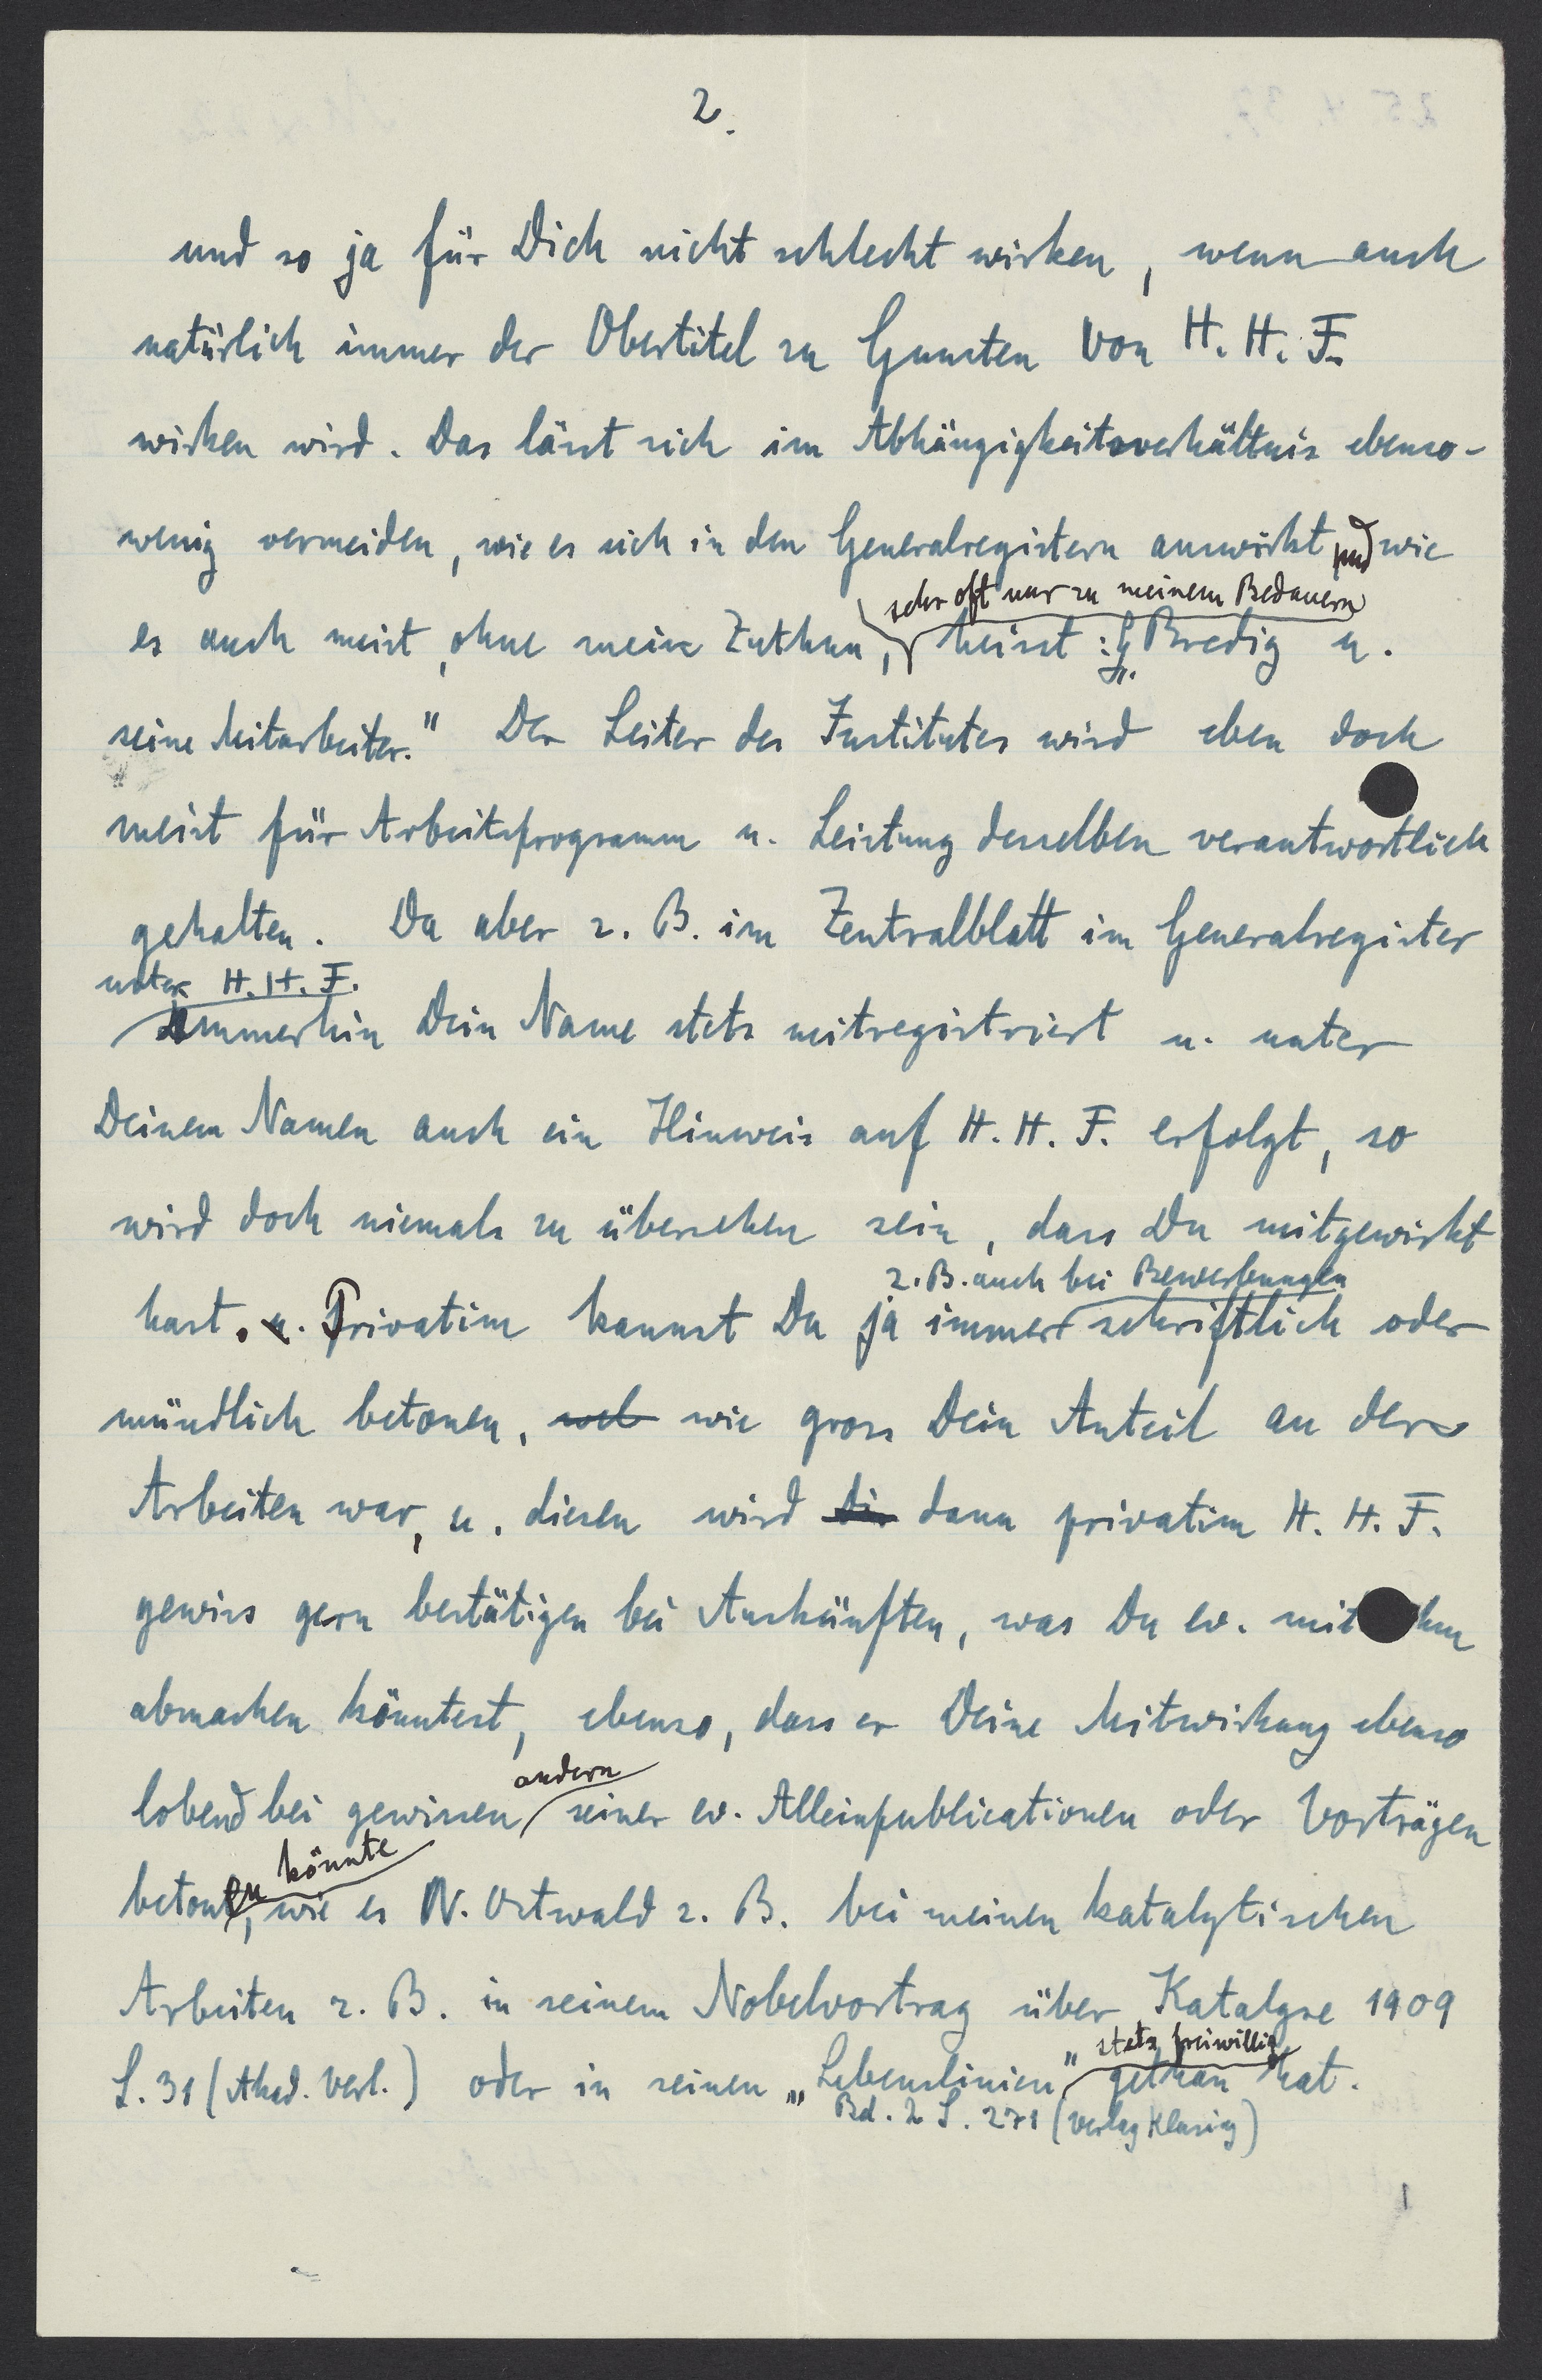 2.
und so ja für Dich nicht schlecht wirken, wenn auch
natürlich immer der Obertitel zu Gunsten von H. H. F.
wirken wird. Das lässt sich im Abhängigkeitsverhältnis ebenso-
wenig vermeiden, wie es sich in den Generalregistern auswirkt und wie
sehr oft nur zu meinem Bedauern
es auch meist, ohne mein Zuthun, heisst: „G. Bredig u.
seine Mitarbeiter." Der Leiter des Institutes wird eben doch
meist für Arbeitsprogramm u. Leistung desselben verantwortlich
gehalten. Da aber z. B. im Zentralblatt im Generalregister
unter H. H. F.
immerhin Dein Name stets mitregistriert u. unter
Deinem Namen auch ein Hinweis auf H. H. F. erfolgt, so
wird doch niemals zu übersehen sein, dass Du mitgewirkt
z. B. auch bei Bewerbungen
hast. u. Privatim kannst Du ja immer schriftlich oder
mündlich betonen, wel wie gross Dein Anteil an der
Arbeiten war, u. diesen wird dir dann privatim H. H. F.
gewiss gern bestätigen bei Auskünften, was Du ev. mit ihm
abmachen könntest, ebenso, dass er Deine Mitwirkung ebenso
andern
lobend bei gewissen seiner ev. Alleinpublicationen oder Vorträgen
könnte
betonen, wie es W. Ostwald z. B. bei meinen katalytischen
Arbeiten z. B. in seinem Nobelvortrag über Katalyse 1909
stets freiwillig
S. 31 (Akad. Verl.) oder in seinen „Lebenslinien" gethan hat.
Bd. 2 S. 271 (Verlag Klasing)